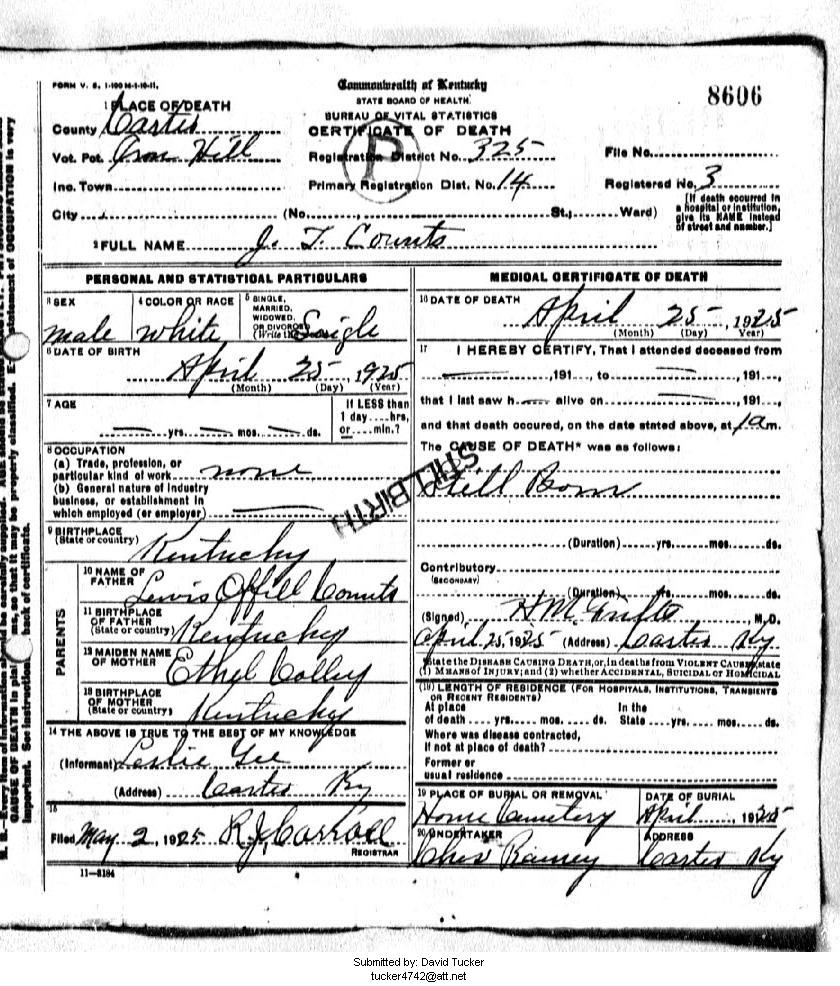 FORM V. S. 1-100 M-1-10-11.
Commonwealth of Kentucky
STATE BOARD OF HEALTH
BUREAU OF VITAL STATISTICS
CERTIFICATE OF DEATH
8606
1 PLACE OF DEATH
County Carter
Vot. Pct. Iron Hill
Registration District No. 325
File No.
Inc. Town
Primary Registration Dist. No. 14
Registered No. 3
P
City (No. St.; Ward)
[If death occurred in a hospital or institution, give its NAME instead of street and number.]
2 FULL NAME J. T. Counts
PERSONAL AND STATISTICAL PARTICULARS
3 SEX male
4 COLOR OR RACE white
5 SINGLE, MARRIED, WIDOWED, OR DIVORCED (Write the Single
6 DATE OF BIRTH
April 25, 1925
(Month) (Day) (Year)
7 AGE
yrs. mos. ds.
If LESS than 1 day hrs. or min.?
8 OCCUPATION
(a) Trade, profession, or
particular kind of work none
(b) General nature of industry
business, or establishment in
which employed (or employer)
STILLBIRTH
9 BIRTHPLACE
(State or country) Kentucky
PARENTS
10 NAME OF FATHER Lewis Offill Counts
11 BIRTHPLACE OF FATHER (State or country) Kentucky
12 MAIDEN NAME OF MOTHER Ethel Colley
13 BIRTHPLACE OF MOTHER (State or country) Kentucky
14 THE ABOVE IS TRUE TO THE BEST OF MY KNOWLEDGE
(Informant) Leslie Gee
(Address) Carter Ky
15
Filed May 2, 1925 R J Carroll
REGISTRAR
11-3184
MEDICAL CERTIFICATE OF DEATH
16 DATE OF DEATH
April 25, 1925
(Month) (Day) (Year)
17 I HEREBY CERTIFY, That I attended deceased from
, 191 , to , 191 ,
that I last saw h alive on , 191 ,
and that death occured, on the date stated above, at 1 a m.
The CAUSE OF DEATH* was as follows:
Still Born
(Duration) yrs. mos. ds.
Contributory
(SECONDARY)
(Duration) yrs. mos. ds.
(Signed) H M , M. D.
April 25, 1925 (Address) Carter Ky
State the DISEASE CAUSING DEATH, or, in deaths from VIOLENT CAUSES, state
(1) MEANS OF INJURY; and (2) whether ACCIDENTAL, SUICIDAL or HOMICIDAL
(18) LENGTH OF RESIDENCE (FOR HOSPITALS, INSTITUTIONS, TRANSIENTS
OR RECENT RESIDENTS)
At place of death yrs. mos. ds. In the State yrs. mos. ds.
Where was disease contracted,
if not at place of death?
Former or
usual residence
19 PLACE OF BURIAL OR REMOVAL Home Cemetery
DATE OF BURIAL April , 1925
20 UNDERTAKER Ches Ramey
ADDRESS Carter Ky
Submitted by: David Tucker
tucker4742@att.net